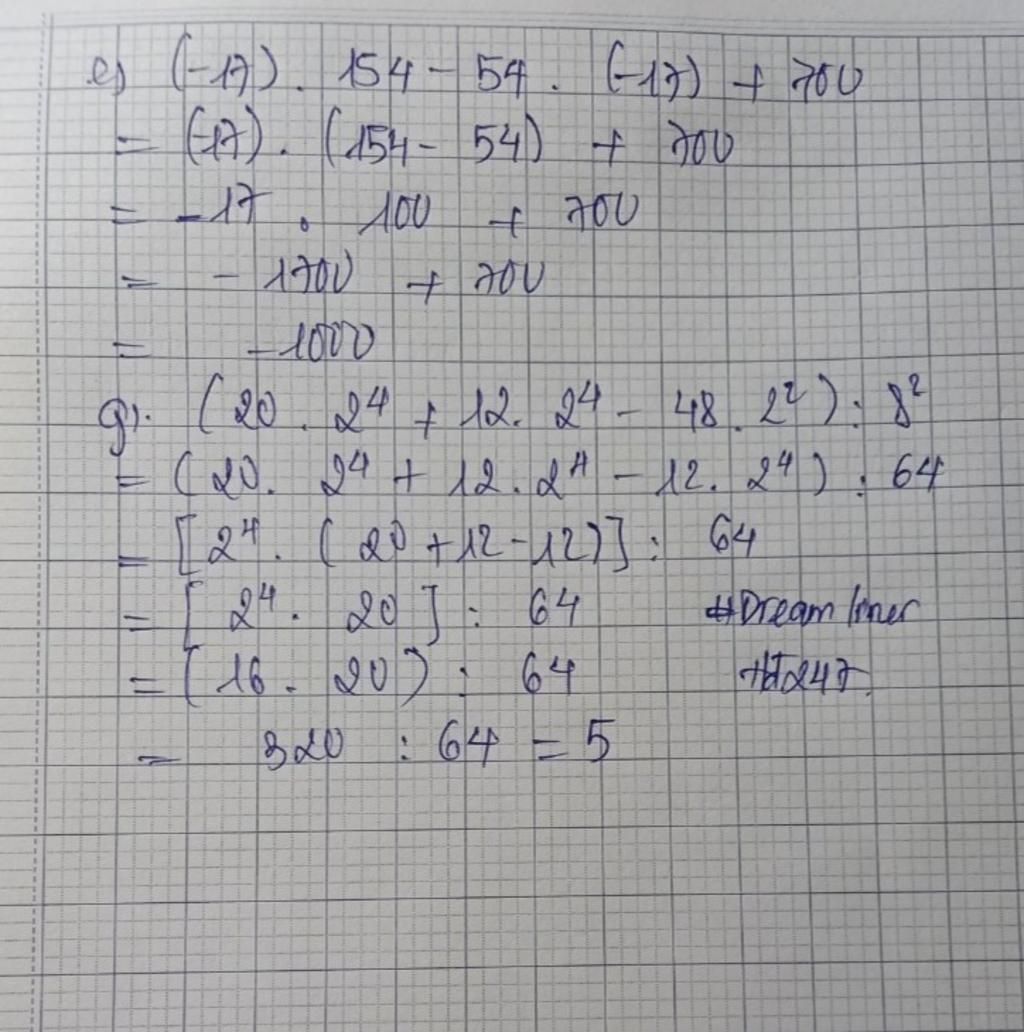 e) (-17). 154 - 54. (-17) + 700
= (-17). (154 - 54) + 700
= -17. 100 + 700
= -1700 + 700
= -1000
g). (20. 2⁴ + 12. 2⁴ - 48. 2²): 8²
= (20. 2⁴ + 12. 2⁴ - 12. 2⁴): 64
= [2⁴. (20 + 12 - 12)]: 64
= [2⁴. 20]: 64 #Dreamliner
= (16. 20): 64
= 320 : 64 = 5